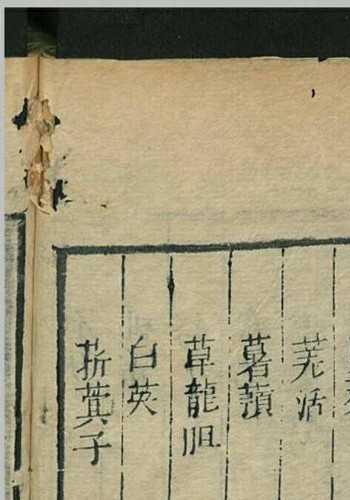 羌活
薯蕷
草龍胆
白英
菥蓂子